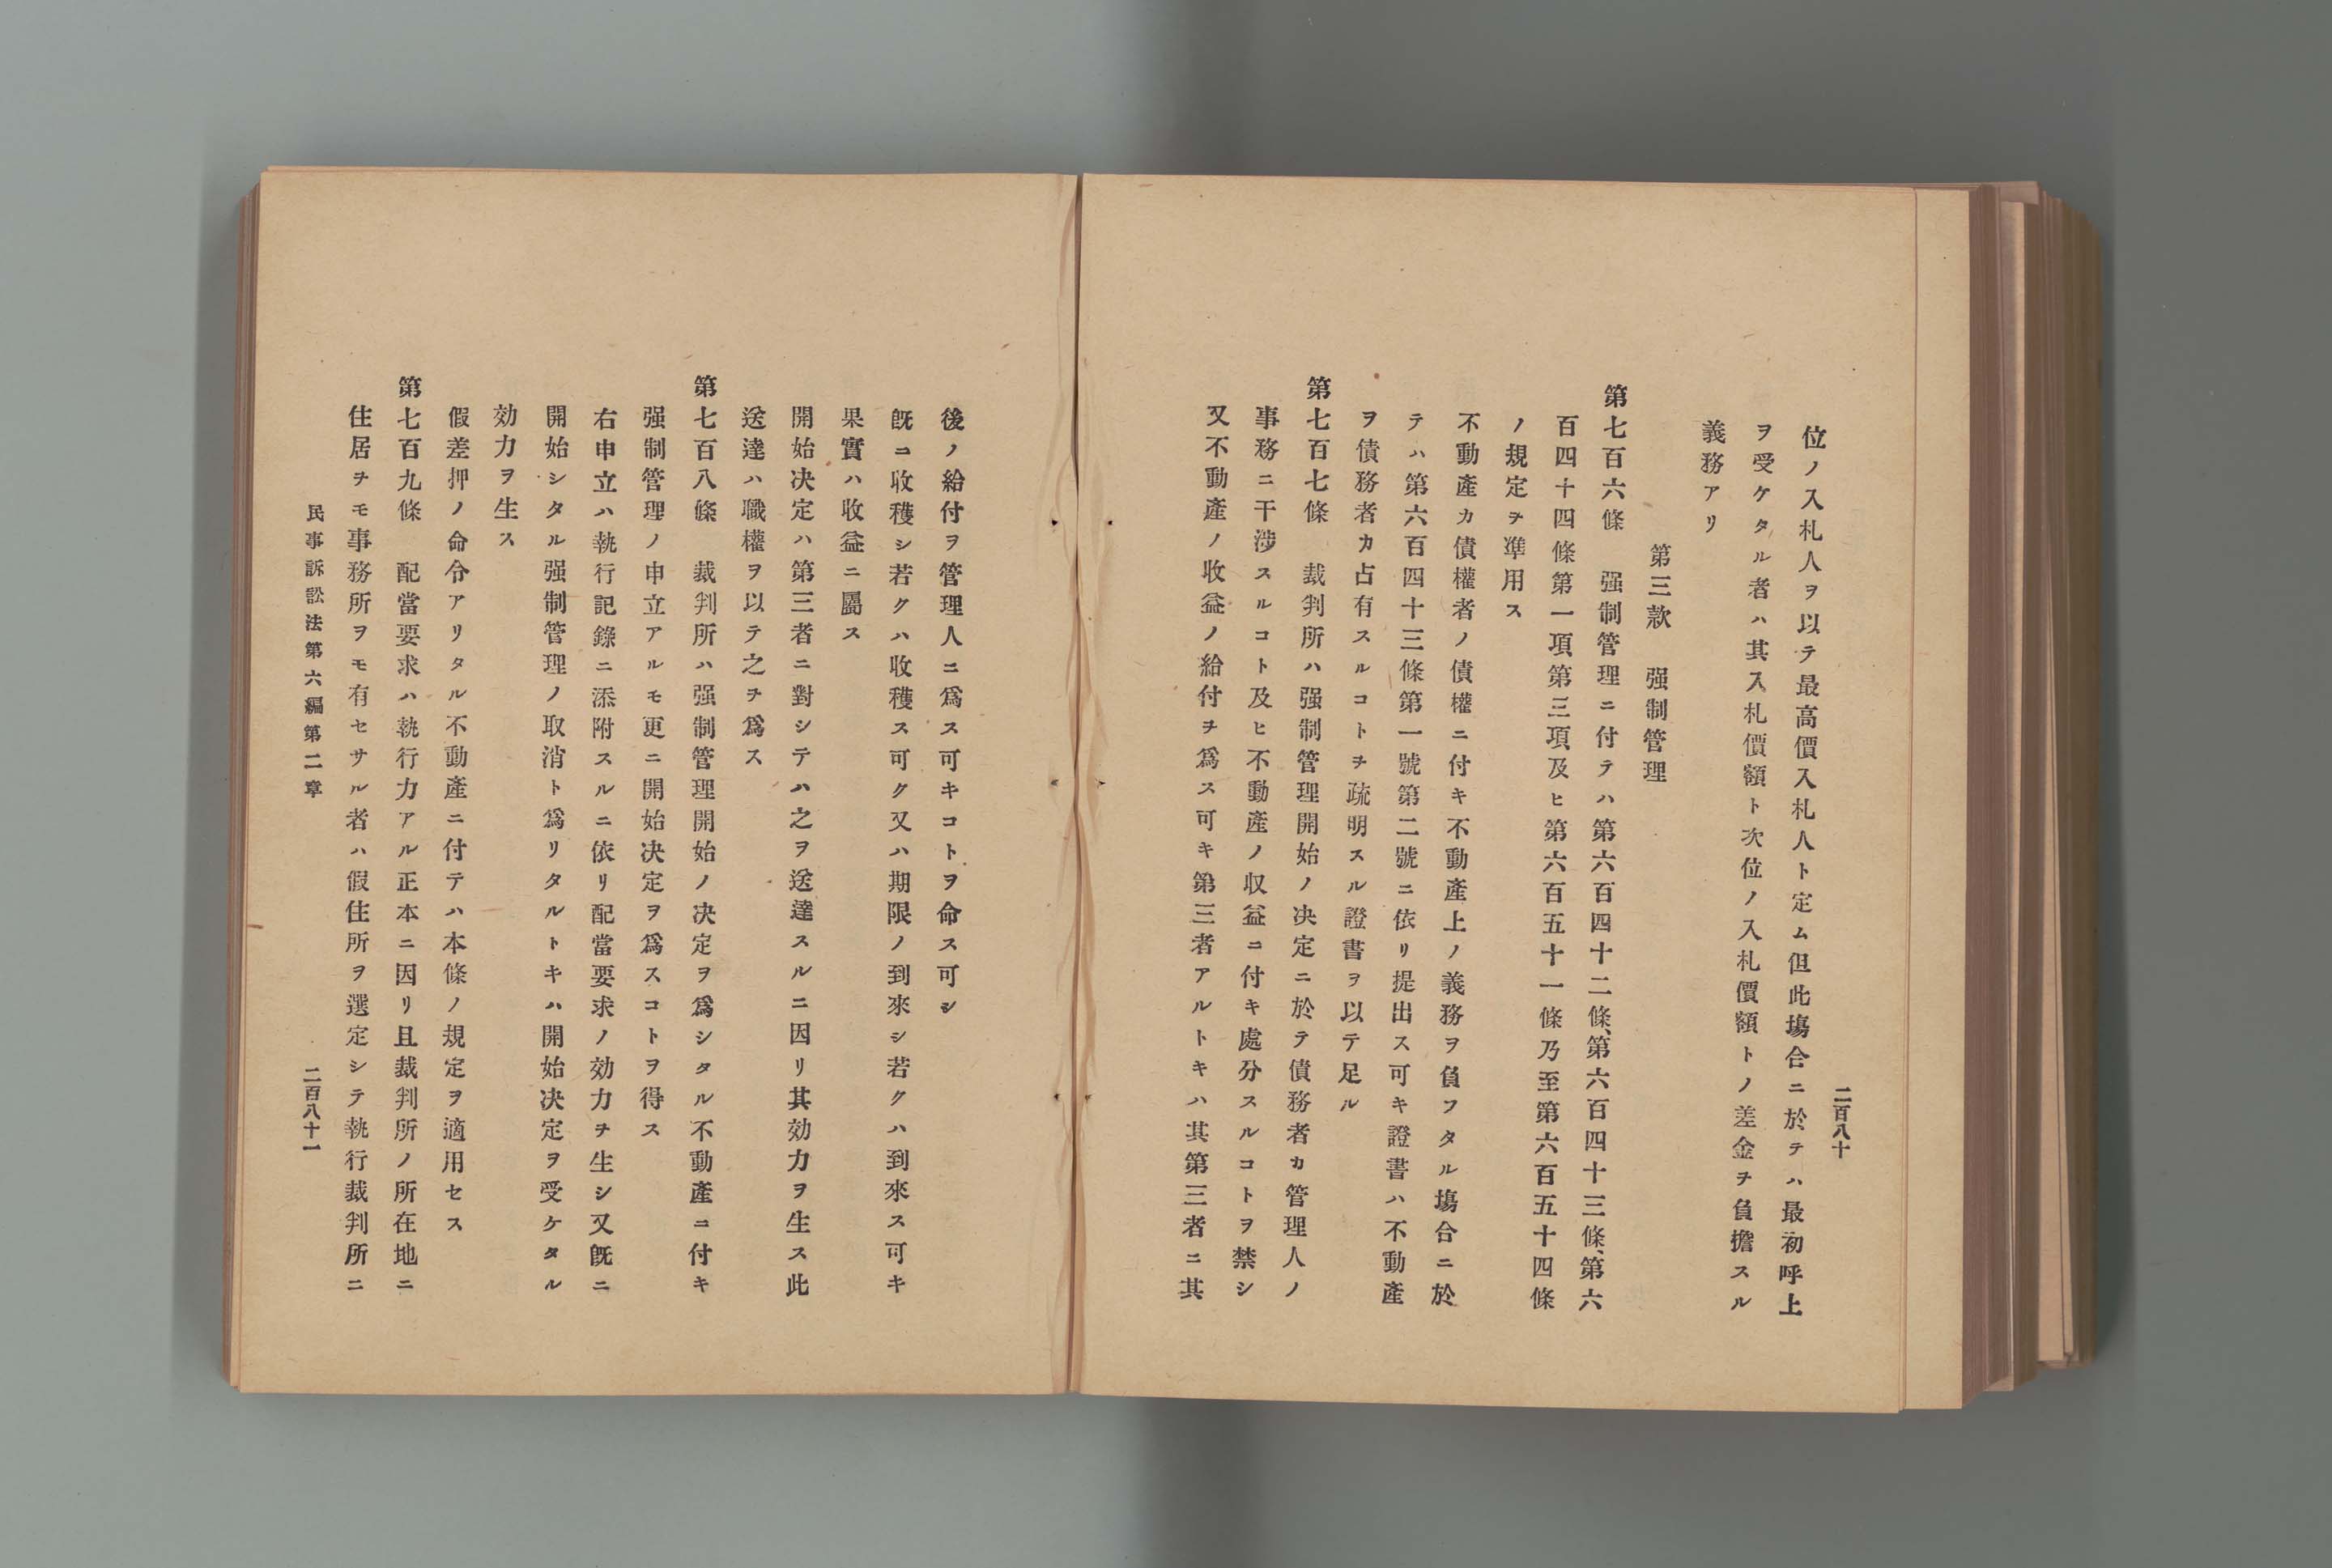 二百八十
位ノ入札人ヲ以テ最高價入札人ト定ム但此塲合ニ於テハ最初呼上
ヲ受ケタル者ハ其入札價額ト次位ノ入札價額トノ差金ヲ負擔スル
義務アリ
第三款　强制管理
第七百六條　强制管理ニ付テハ第六百四十二條、第六百四十三條、第六
百四十四條第一項第三項及ヒ第六百五十一條乃至第六百五十四條
ノ規定ヲ準用ス
不動產カ債權者ノ債權ニ付キ不動產上ノ義務ヲ負フタル塲合ニ於
テハ第六百四十三條第一號第二號ニ依リ提出ス可キ證書ハ不動產
ヲ債務者カ占有スルコトヲ疏明スル證書ヲ以テ足ル
第七百七條　裁判所ハ强制管理開始ノ决定ニ於テ債務者カ管理人ノ
事務ニ干涉スルコト及ヒ不動產ノ収益ニ付キ處分スルコトヲ禁シ
又不動產ノ收益ノ給付ヲ爲ス可キ第三者アルトキハ其第三者ニ其
後ノ給付ヲ管理人ニ爲ス可キコトヲ命ス可シ
旣ニ收穫シ若クハ收穫ス可ク又ハ期限ノ到來シ若クハ到來ス可キ
果實ハ收益ニ屬ス
開始决定ハ第三者ニ對シテハ之ヲ送達スルニ因リ其効力ヲ生ス此
送達ハ職權ヲ以テ之ヲ爲ス
第七百八條　裁判所ハ强制管理開始ノ决定ヲ爲シタル不動產ニ付キ
强制管理ノ申立アルモ更ニ開始决定ヲ爲スコトヲ得ス
右申立ハ執行記錄ニ添附スルニ依リ配當要求ノ効力ヲ生シ又旣ニ
開始シタル强制管理ノ取消ト爲リタルトキハ開始决定ヲ受ケタル
効力ヲ生ス
假差押ノ命令アリタル不動產ニ付テハ本條ノ規定ヲ適用セス
第七百九條　配當要求ハ執行力アル正本ニ因リ且裁判所ノ所在地ニ
住居ヲモ事務所ヲモ有セサル者ハ假住所ヲ選定シテ執行裁判所ニ
民事訴訟法第六編第二章
二百八十一